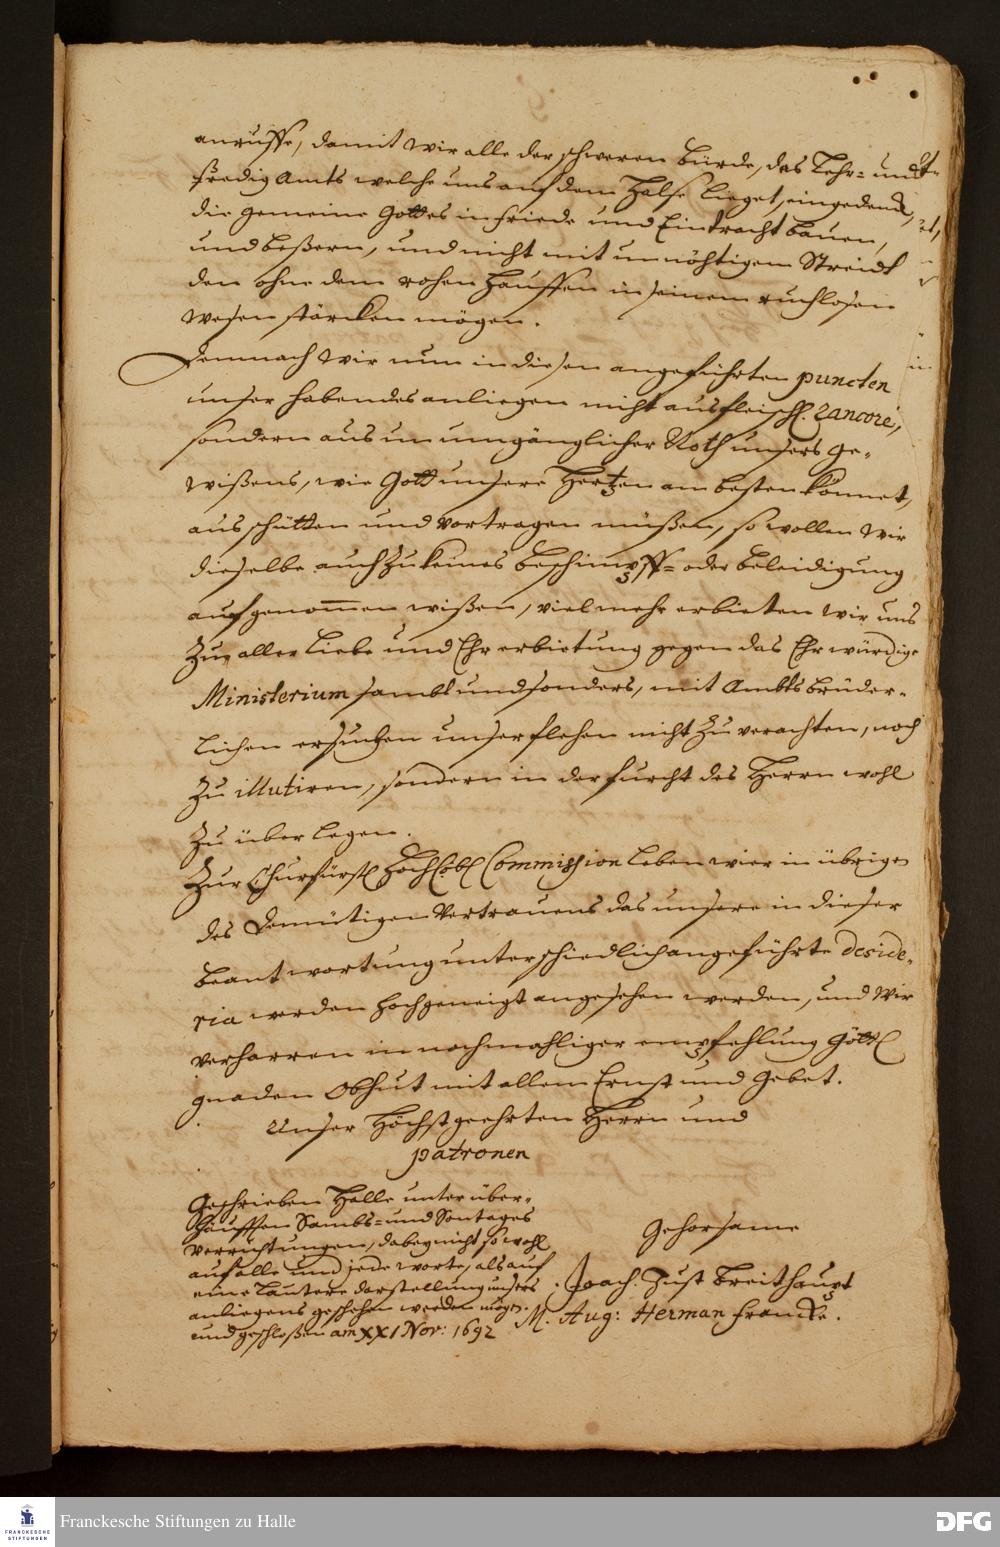 anruffe, damit wir alle der schweren bürde, des Lehr- und
Predig Amts welche uns auf dem Halse lieget, eingedenck,
die gemeine Gottes in friede und Eintracht bauen,
und beßern, und nicht mit unnöhtigem Streidt
den ohne dem rohen Hauffen in seinem ruchlosen
wesen stärcken mögen.
Demnach wir nun in diesen angeführten puncten
unser habendes anliegen nicht aus fleischl. rancore,
sondern aus un umgänglicher Noth unsers Ge-
wißens, wie Gott unsere Hertzen am besten kennet,
aus schütten und vortragen müßen, so wollen wir
dieselbe auch zu keines beschimpff- oder beleidigung
aufgenom̄en wißen, viel mehr erbieten wir uns
zu aller Liebe und Ehr erbietung gegen das Ehr würdige
Ministerium sambt und sonders, mit Ambts brüder-
lichen ersuchen unser flehen nicht zu verachten, noch
zu illudiren, sondern in der furcht des Herrn wohl
zu über legen.
Zur Churfürstl Hochlöbl Commission leben wier in übrigen
des Demütigen Vertrauens das unsere in dieser
beantwortung unterschiedlich angeführte deside-
ria werden hochgeneigt angesehen werden, und wir
verharren in nochmahliger empfehlung Göttl
gnaden Obhut mit allem Ernst und Gebet.
Unser Höchstgeehrten Herrn und
patronen
Geschrieben Halle unter über-
häufften Sambs- und Sontages
Verrichtungen, dabey nicht so wohl
auf alle und jede worte, als auf
eine lautere darstellung unsers
anliegens gesehen werden mögen.
und geschloßen am XXI Nov: 1692
Gehorsame
Joach. Just Breithaupt
M. Aug: Herman Francke.
Franckesche Stiftungen zu Halle
FRANCKESCHE
STIFTUNGEN
DFG